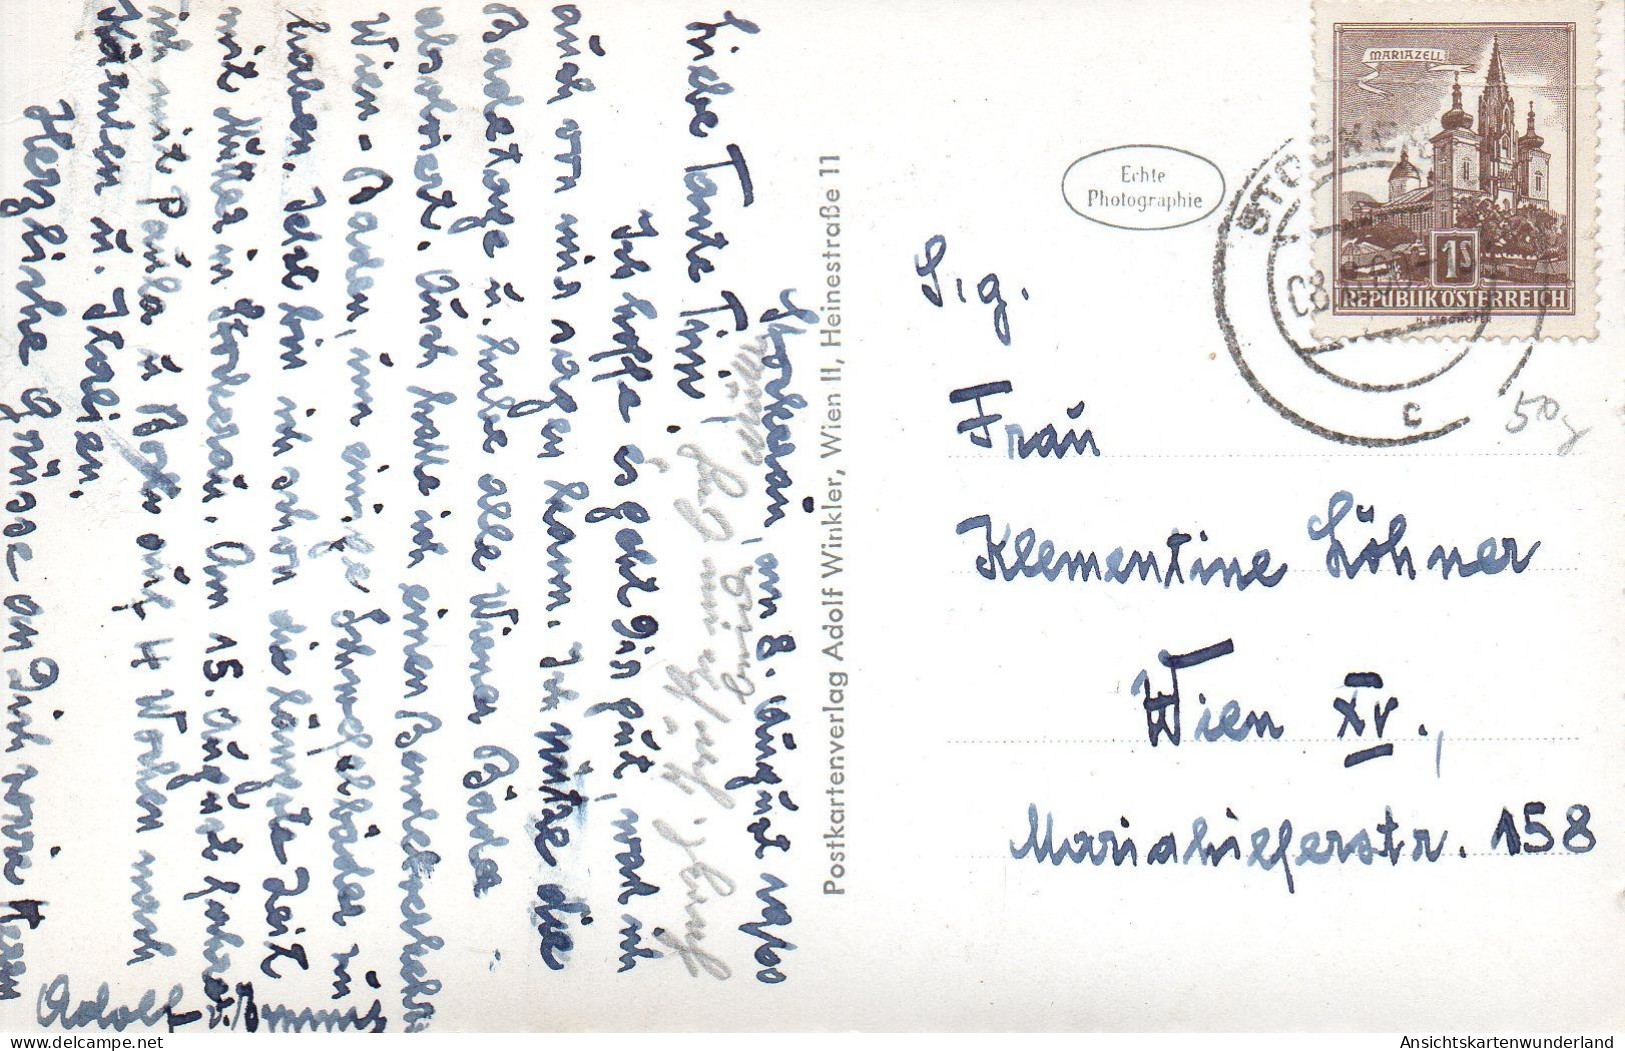 Stockerau, am 8. August 1960
Liebe Tante Tini,
Ich hoffe es geht Dir gut, was ich
auch von mir sagen kann. Ich nütze die
Badetage u. habe alle Wiener Bäder
absolviert. Auch hatte ich einen
Wien - Baden, um einige Schwefelbäder zu
haben. Jetzt bin ich schon die längste Zeit
mit Mutter in Stockerau. Am 15. August fahre
ich mit Paula u. auf 4 Wochen nach
Kärnten u. Italien.
Herzliche Grüsse an Dich
Adolf
Postkartenverlag Adolf Winkler, Wien II, Heinestraße 11
Echte
Photographie
MARIAZELL
1S
REPUBLIK ÖSTERREICH
STOCKER
c
50g
Sig.
Frau
Klementine Löhner
Wien XV.,
Mariahilferstr. 158
© by oldthing.at
AnsichtskartenWunderland